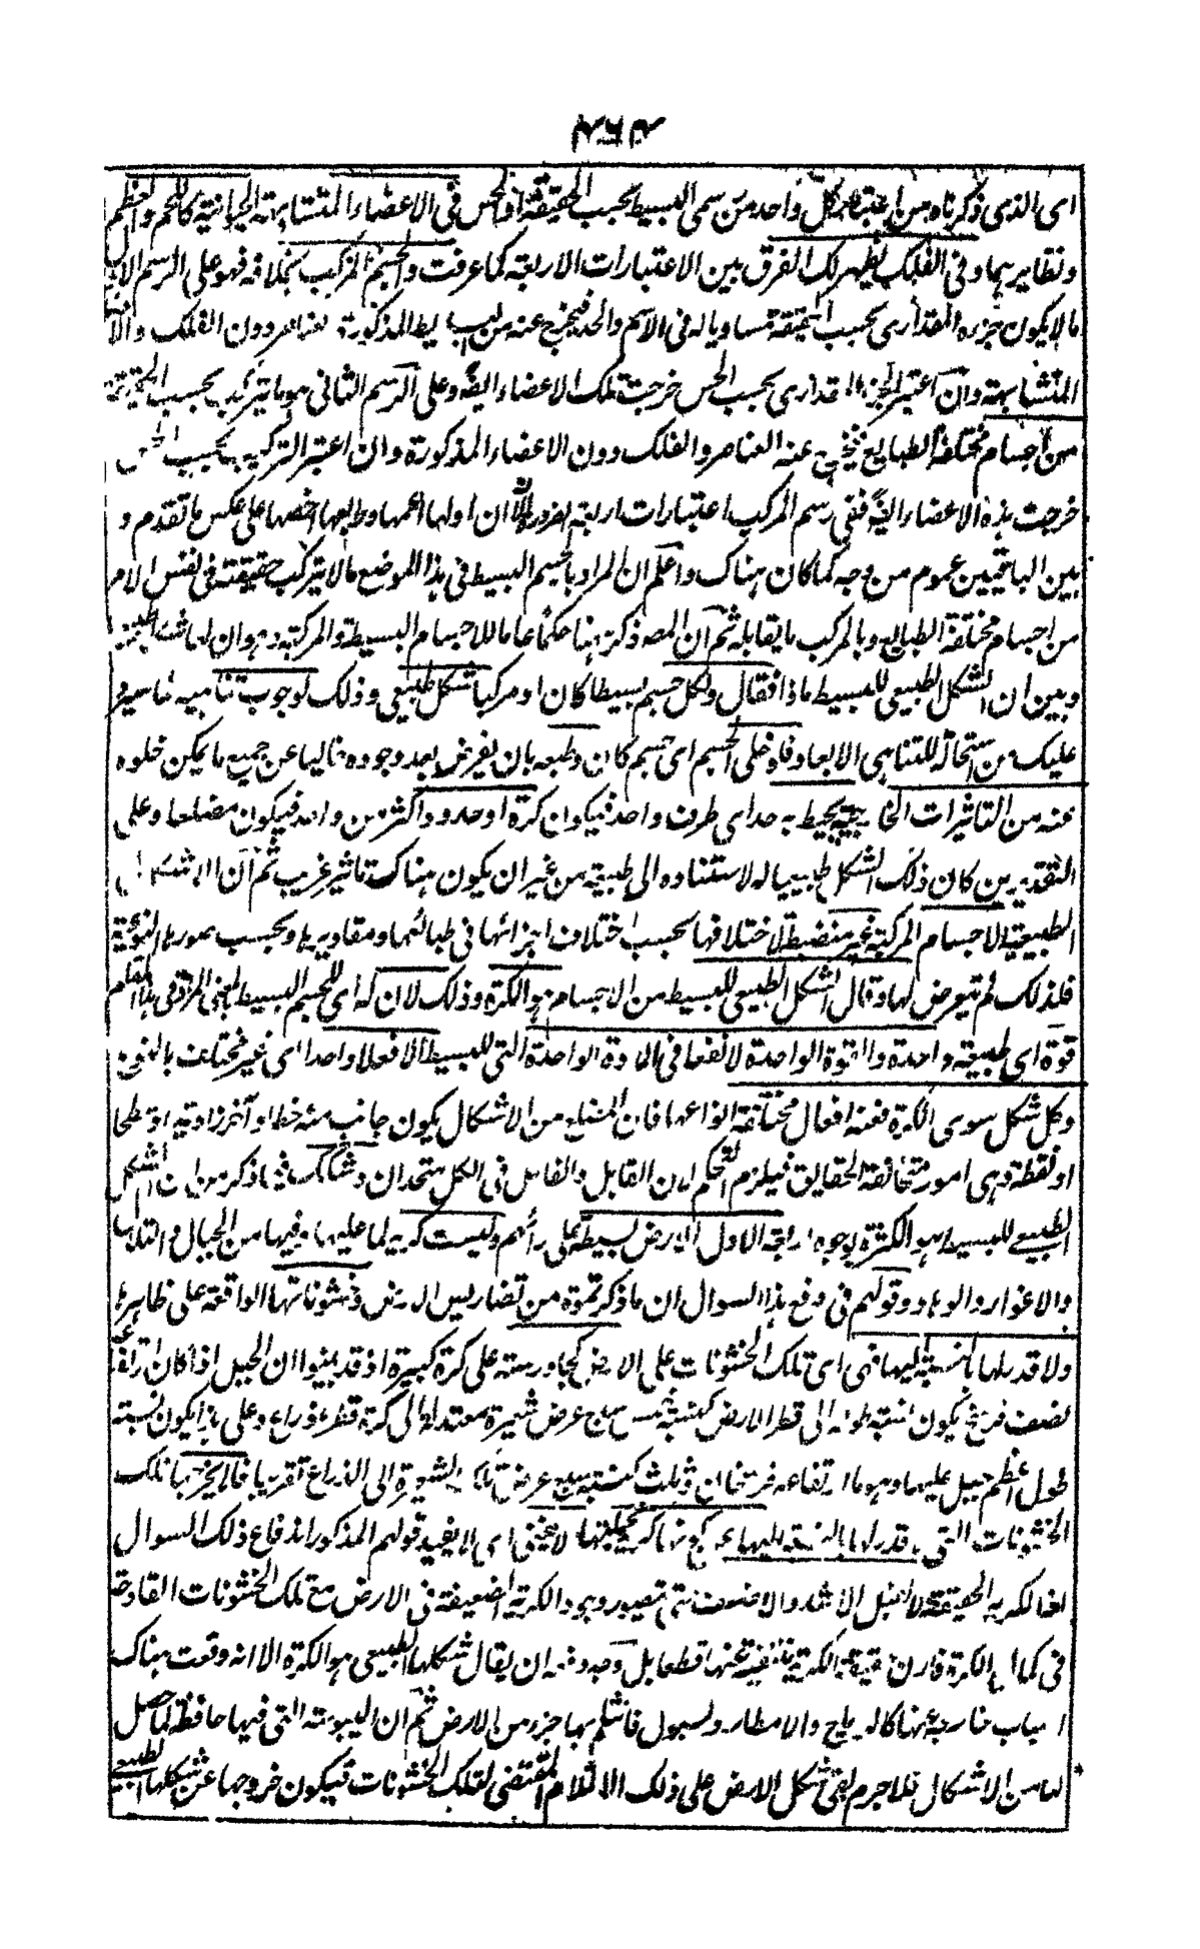 اى الذى ذكرناه من اعتبار كل واحد من سمى البسيط بحسب الحقيقة او الحس فى الاعضاء المتشابهة الحيوانية كاللحم والعظم
ونظايرهما وفى الفلك ليظهر لك الفرق بين الاعتبارات الاربعة كما عرفت والجسم المركب بخلافه فهو على الرسم الاول
ما لا يكون جزءه المقدارى بحسب الحقيقة مساويا له فى الاسم والحد فيخرج عنه من البسايط المذكورة العناصر دون الفلك والاعضاء
المتشابهة وان اعتبر الجزء المقدارى بحسب الحس خرجت تلك الاعضاء ايضا وعلى الرسم الثانى هو ما يتركب بحسب الحقيقة
من اجسام مختلفة الطبايع فيخرج عنه العناصر والفلك دون الاعضاء المذكورة وان اعتبر التركيب بحسب الحس
خرجت هذه الاعضاء ايضا ففى رسم المركب اعتبارات اربعة ايضا الا ان اولها اعمها ورابعها اخصها على عكس ما تقدم و
بين الباقيين عموم من وجه كما كان هناك واعلم ان المراد بالجسم البسيط فى هذا الموضع ما لا يتركب حقيقته فى نفس الامر
من اجسام مختلفة الطبايع وبالمركب ما يقابله ثم ان المصـ ذكر ههنا حكما عاما للاجسام البسيطة والمركبة وهو ان لها
وبين ان الشكل الطبيعى للبسيط ماذا فقال ولكل جسم بسيطا كان او مركبا شكل طبيعى وذلك لوجوب تناهيه لما سيقرر
عليك من استحالة اللاتناهى الابعاد فلو خلى الجسم اى جسم كان وطبعه بان يفرض بعد وجوده خاليا عن جميع ما يمكن خلوه
عنه من التاثيرات الخارجية يحيط به حد اى طرف واحد فيكون كرة او حدود اكثر من واحد فيكون مضلعا وعلى
التقديرين كان ذلك الشكل طبيعيا له لاستناده الى طبيعته من غير ان يكون هناك تاثير غريب ثم ان الاشكال
الطبيعية للاجسام المركبة غير منضبطة لاختلافها بحسب اختلاف اجزائها فى طبائعها ومقاديرها وبحسب صورها النوعية
فلذلك لم يتعرض لها وقال الشكل الطبيعى للبسيط من الاجسام هو الكرة وذلك لان له اى للجسم البسيط بالمعنى المراد فى هذا المقام
قوة اى طبيعة واحدة والقوة الواحدة لا تفعل فى المادة الواحدة التى للبسيط الا فعلا واحدا اى غير مختلف بالنوع
وكل شكل سوى الكرة ففيه افعال مختلفة انواعها فان المضلع من الاشكال يكون جانب منه خطا وآخر زاوية او سطحا
او نقطة وهى امور متخالفة الحقايق فيلزم التحكم لان القابل والفاعل فى الكل متحدان وشكك فيما ذكر من ان الشكل
الطبيعى للبسيط هو الكرة بوجوه اربعة الاول الارض بسيطة على رأيهم وليست كرية لما عليها وفيها من الجبال والتلال
والاغوار والوهاد وقولهم فى دفع هذا السوال ان ما ذكرتموه من تضاريس الارض وخشوناتها الواقعة على ظاهرها
ولا قدر لها بالنسبة اليها فهى اى تلك الخشونات على الارض كجاورسة على كرة كبيرة اذ قد بينوا ان الجبل اذا كان ارتفاعه
نصف فرسخ يكون نسبة طوله الى قطر الارض كنسبة خمس سبع عرض شعيرة معتدلة الى كرة قطرها ذراع وعلى هذا يكون نسبة
طول اعظم جبل عليها وهو ما ارتفاعه فرسخان وثلث كنسبة سبع عرض تلك الشعيرة الى الذراع تقريبا فلا يخرجها تلك
الخشونات التى لا قدر لها بالنسبة اليها عن كريتها لا يغنى اى لا يفيد قولهم المذكور اندفاع ذلك السوال
لان الكرية الحقيقية لا تقبل الاشد والاضعف حتى يتصور وجود الكرية الضعيفة فى الارض مع تلك الخشونات القادحة
فى كمال الكرة فان حقيقة الكرية منتفية عنها قطعا بل وجه دفعه ان يقال شكلها الطبيعى هو الكرة الا انه وقعت هناك
اسباب خارجة عنها كالرياح والامطار والسيول فانثلم بها جزء من الارض ثم ان اليبوسة التى فيها حافظة لما حصل
لها من الاشكال فلا جرم بقى شكل الارض على ذلك الانثلام المقتضى لتلك الخشونات فيكون خروجها عن شكلها الطبيعى